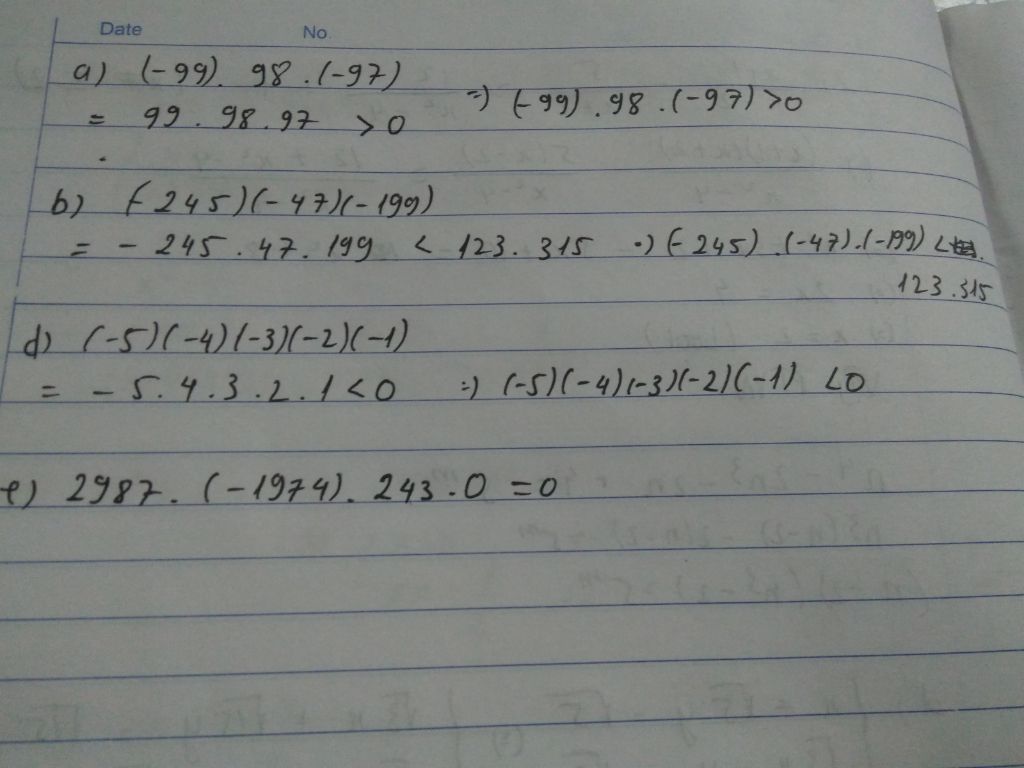 Date No.
a) (-99). 98 .(-97)
= 99 . 98 . 97 > 0 => (-99) . 98 . (-97) > 0
b) (-245)(-47)(-199)
= - 245 . 47 . 199 < 123 . 315 => (-245) . (-47).(-199) <
123 . 315
d) (-5)(-4)(-3)(-2)(-1)
= - 5. 4 . 3 . 2 . 1 < 0 => (-5)(-4)(-3)(-2)(-1) < 0
e) 2987. (-1974). 243 . 0 = 0